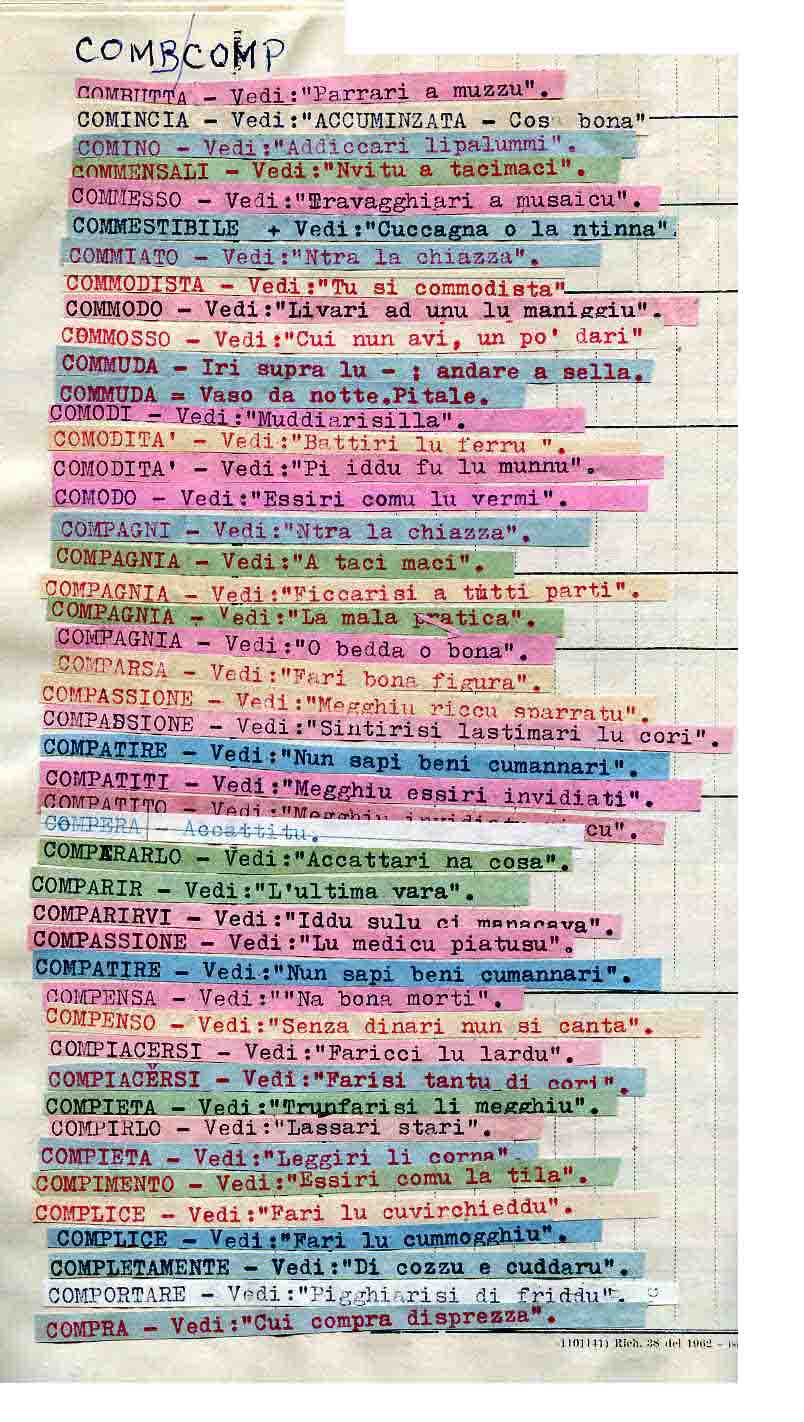 COMB/COMP
COMBUTTA - Vedi:"Parrari a muzzu".
COMINCIA - Vedi:"ACCUMINZATA - Cosa bona"
COMINO - Vedi:"Addiccari lipalummi".
COMMENSALI - Vedi:"Nvitu a tacimaci".
COMMESSO - Vedi:"Travagghiari a musaicu".
COMMESTIBILE + Vedi:"Cuccagna o la ntinna".
COMMIATO - Vedi:"Ntra la chiazza".
COMMODISTA - Vedi:"Tu si commodista"
COMMODO - Vedi:"Livari ad unu lu maniggiu".
COMMOSSO - Vedi:"Cui nun avi, un po' dari"
COMMUDA - Iri supra lu - ; andare a sella.
COMMUDA = Vaso da notte.Pitale.
COMODI - Vedi:"Muddiarisilla".
COMODITA' - Vedi:"Battiri lu ferru ".
COMODITA' - Vedi:"Pi iddu fu lu munnu".
COMODO - Vedi:"Essiri comu lu vermi".
COMPAGNI - Vedi:"Ntra la chiazza".
COMPAGNIA - Vedi:"A taci maci".
COMPAGNIA - Vedi:"Ficcarisi a tutti parti".
COMPAGNIA - Vedi:"La mala pratica".
COMPAGNIA - Vedi:"O bedda o bona".
COMPARSA - Vedi:"Fari bona figura".
COMPASSIONE - Vedi:"Megghiu riccu sparratu".
COMPASSIONE - Vedi:"Sintirisi lastimari lu cori".
COMPATIRE - Vedi:"Nun sapi beni cumannari".
COMPATITI - Vedi:"Megghiu essiri invidiati".
COMPATITO - Vedi:"Megghiu invidiatu cu".
COMPERA - Accattitu.
COMPERARLO - Vedi:"Accattari na cosa".
COMPARIR - Vedi:"L'ultima vara".
COMPARIRVI - Vedi:"Iddu sulu ci mancava".
COMPASSIONE - Vedi:"Lu medicu piatusu".
COMPATIRE - Vedi:"Nun sapi beni cumannari".
COMPENSA - Vedi:""Na bona morti".
COMPENSO - Vedi:"Senza dinari nun si canta".
COMPIACERSI - Vedi:"Faricci lu lardu".
COMPIACERSI - Vedi:"Farisi tantu di cori".
COMPIETA - Vedi:"Trunfarisi li megghiu".
COMPIRLO - Vedi:"Lassari stari".
COMPIETA - Vedi:"Leggiri li corna".
COMPIMENTO - Vedi:"Essiri comu la tila".
COMPLICE - Vedi:"Fari lu cuvirchieddu".
COMPLICE - Vedi:"Fari lu cummogghiu".
COMPLETAMENTE - Vedi:"Di cozzu e cuddaru".
COMPORTARE - Vedi:"Pigghiarisi di friddu".
COMPRA - Vedi:"Cui compra disprezza".
Rich. 38 del 1962